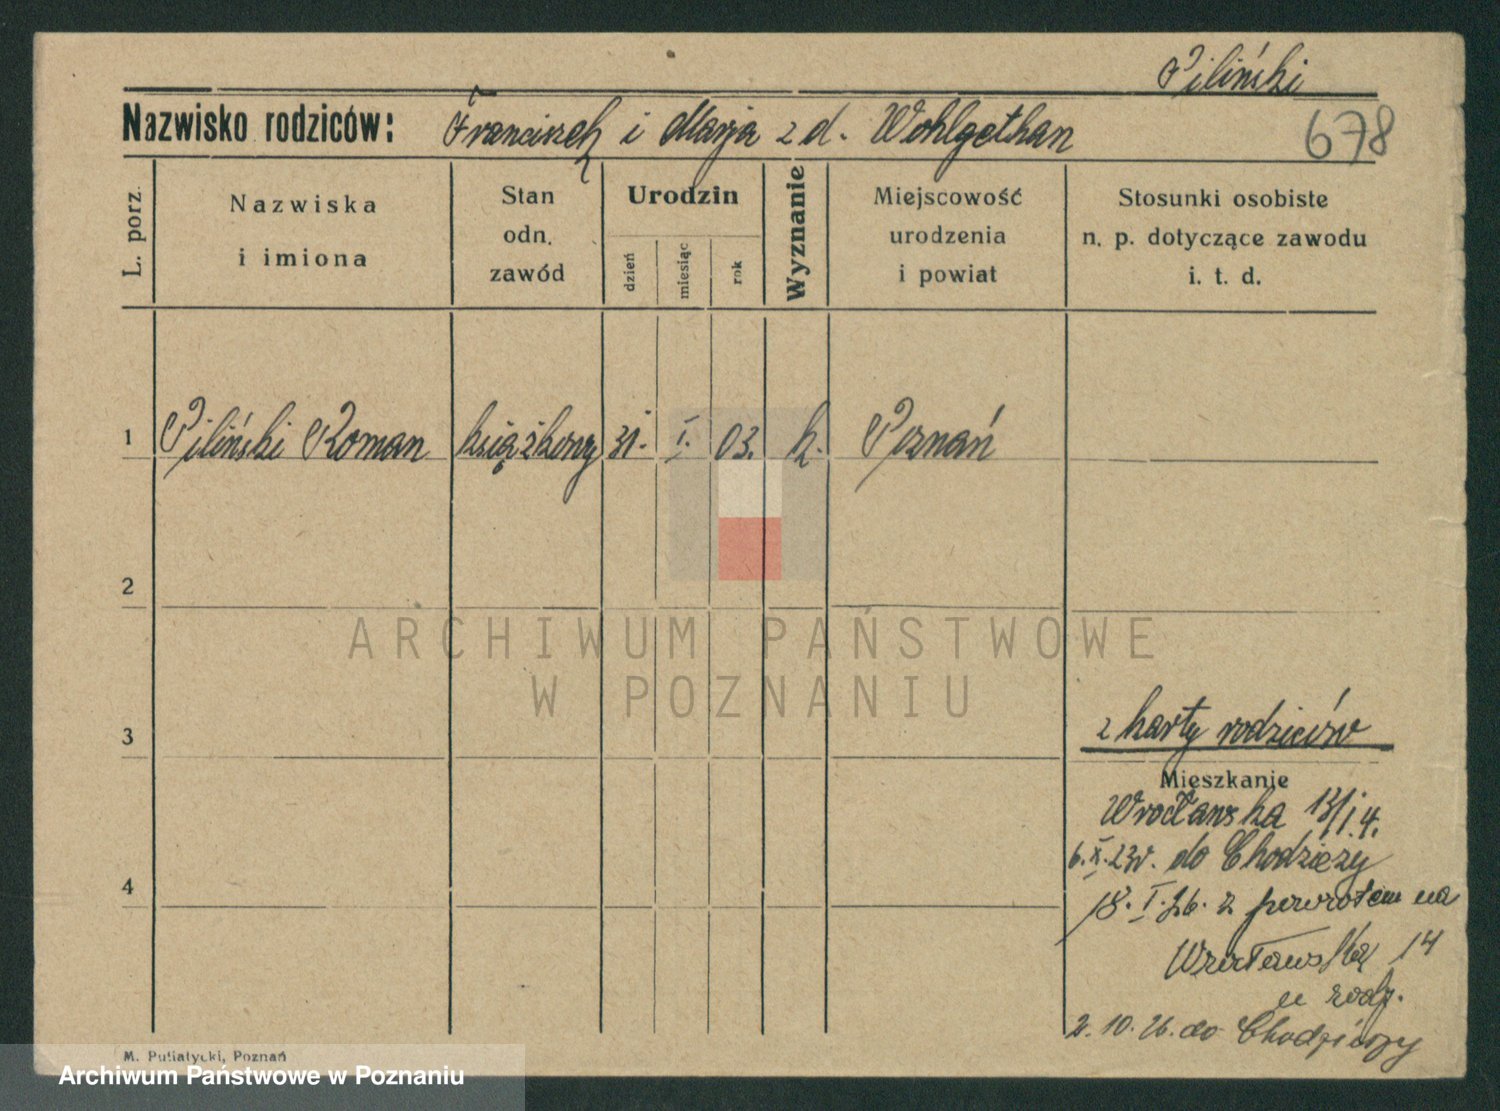 Piliński
Nazwisko rodziców: Franciszek i Marja z d. Wohlgethan
678
L. porz.
Nazwiska
i imiona
Stan
odn.
zawód
Urodzin
dzień
miesiąc
rok
Wyznanie
Miejscowość
urodzenia
i powiat
Stosunki osobiste
n. p. dotyczące zawodu
i. t. d.
1 Piliński Roman książkowy 31. I. 03. k. Poznań
2
ARCHIWUM PAŃSTWOWE
W POZNANIU
3
z karty rodziców
Mieszkanie
Wrocławska 13/14.
6.X.23r. do Chodzieży
4
18. I. 26. z powrotem na
Wrocławską 14
u rodz.
2. 10. 26. do Chodzieży
M. Putiatycki, Poznań
Archiwum Państwowe w Poznaniu